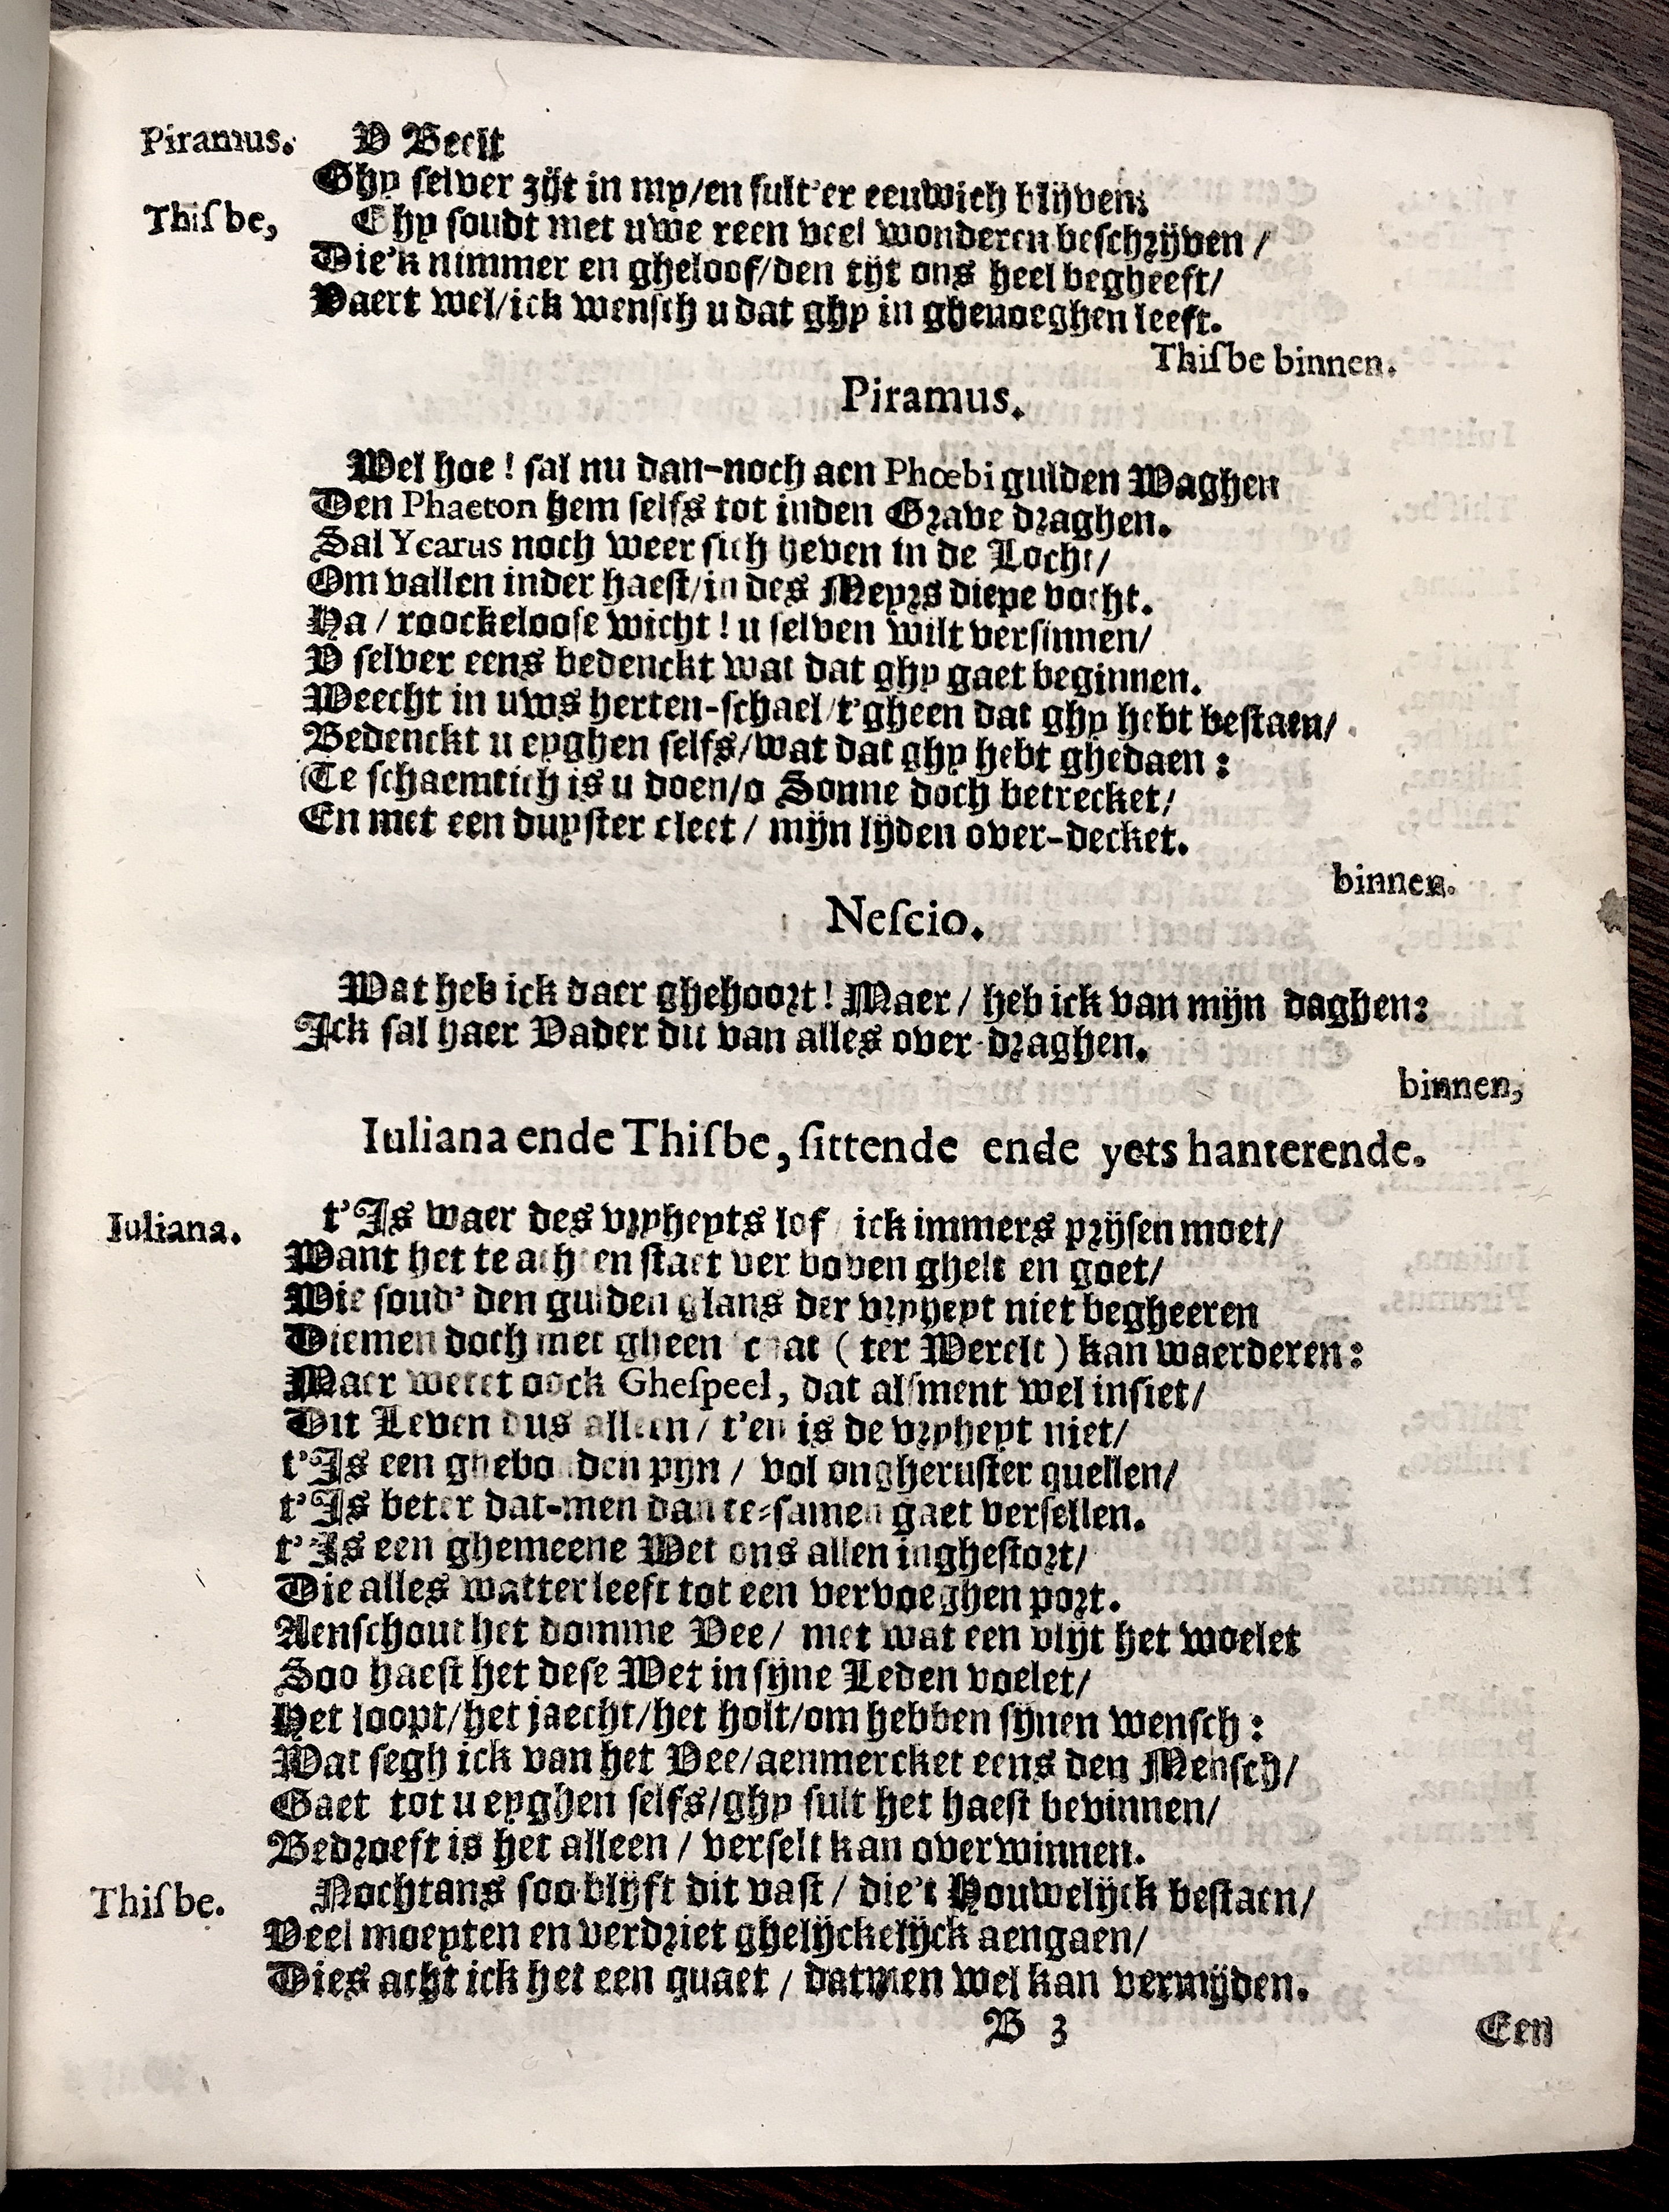 Piramus. V Beelt
Ghy selver zijt in my/en sult'er eeuwich blijven;
Thisbe, Ghy soudt met uwe reen veel wonderen beschrijven /
Die'k nimmer en gheloof/den tijt ons heel begheeft/
Vaert wel/ick wensch u dat ghy in ghenoeghen leeft.
Thisbe binnen.
Piramus.
Wel hoe ! sal nu dan-noch aen Phœbi gulden Waghen
Den Phaeton hem selfs tot inden Grave draghen.
Sal Ycarus noch weer sich heven in de Locht/
Om vallen inder haest/in des Meyrs diepe vocht.
Ha / roockeloose wicht ! u selven wilt versinnen/
V selver eens bedenckt wat dat ghy gaet beginnen.
Weecht in uws herten-schael/t'gheen dat ghy hebt bestaen/
Bedenckt u eyghen selfs/wat dat ghy hebt ghedaen :
Te schaemtich is u doen/o Sonne doch betrecket/
En met een duyster cleet / mijn lijden over-decket.
binnen.
Nescio.
Wat heb ick daer ghehoort ! Maer / heb ick van mijn daghen:
Ick sal haer Vader dit van alles over-draghen.
binnen,
Iuliana ende Thisbe, sittende ende yets hanterende.
Iuliana. t'Is waer des vryheyts lof / ick immers prijsen moet/
Want het te achten staet ver boven ghelt en goet/
Wie soud' den gulden glans der vryheyt niet begheeren
Diemen doch met gheen (ter Werelt) kan waerderen:
Maer wetet oock Ghespeel, dat alsment wel insiet/
Dit Leven dus alleen / t'en is de vryheyt niet/
t'Is een ghebonden pijn / vol ongheruster quellen/
t'Is beter dat-men dan te-samen gaet versellen.
t'Is een ghemeene Wet ons allen inghestort/
Die alles watter leeft tot een vervoeghen port.
Aenschout het domme Vee / met wat een vlijt het woelet
Soo haest het dese Wet in sijne Leden voelet/
Het loopt/het jaecht/het holt/om hebben sijnen wensch :
Wat segh ick van het Vee/aenmercket eens den Mensch/
Gaet tot u eyghen selfs/ghy sult het haest bevinnen/
Bedroeft is het alleen / verselt kan overwinnen.
Thisbe. Nochtans soo blijft dit vast / die't Houwelijck bestaen/
Veel moeyten en verdriet ghelijckelijck aengaen/
Dies acht ick het een quaet / datmen wel kan vermijden.
B 3 Een